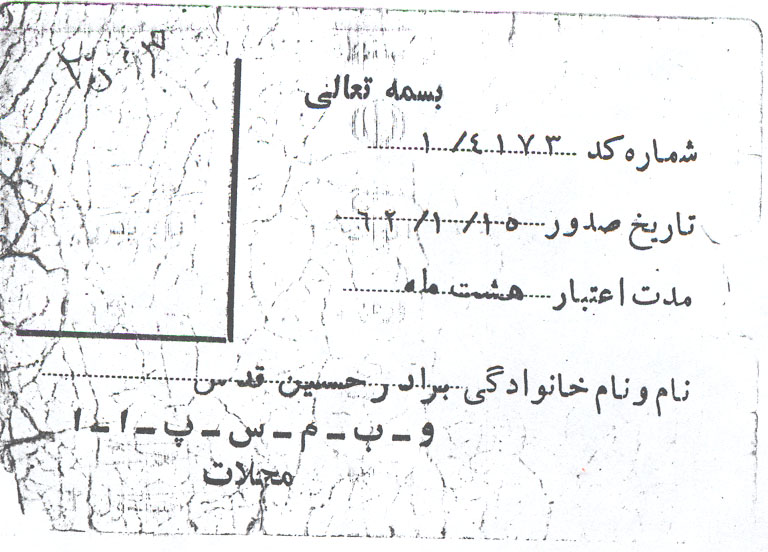 بسمه تعالی
شماره کد ۱/٤۱۷۳
تاریخ صدور ۶۲/۱/۱۵
مدت اعتبار هشت ماه
نام و نام خانوادگی برادر حسین قدس
و ـ ب ـ م ـ س ـ پ ـ ا ـ ا
محلات